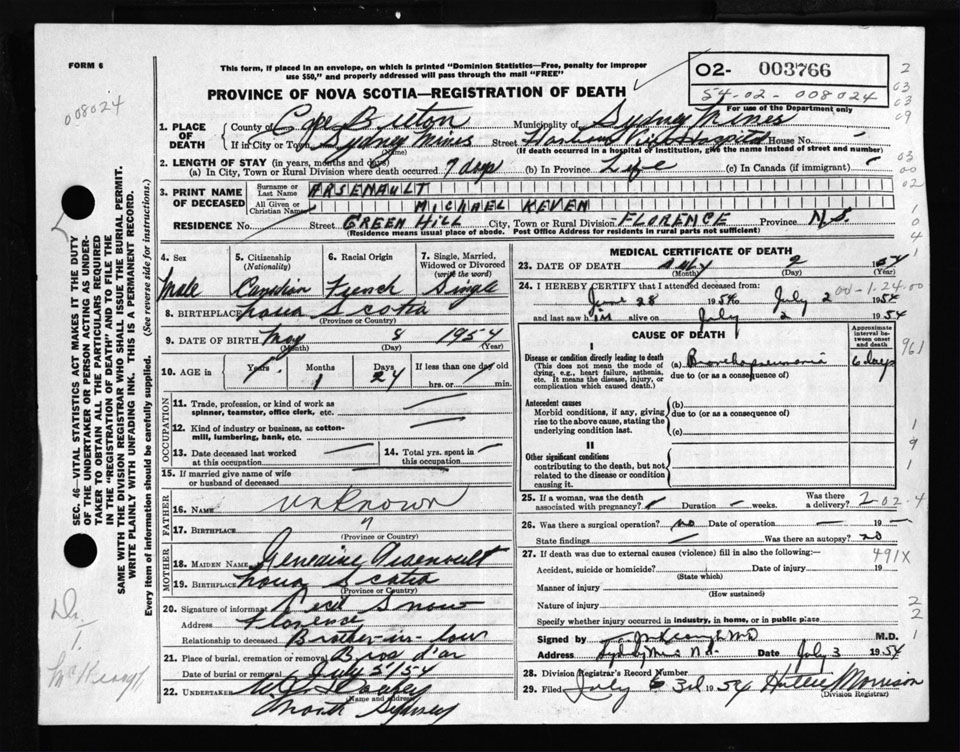 FORM 6
This form, if placed in an envelope, on which is printed "Dominion Statistics—Free, penalty for improper
use $50," and properly addressed will pass through the mail "FREE"
O2- 003766
54-02-008024
008024
PROVINCE OF NOVA SCOTIA—REGISTRATION OF DEATH
For use of the Department only
1. PLACE OF DEATH County of Cape Breton Municipality of Sydney Mines
If in City or Town Sydney Mines (Name) Street Harbor View Hospital House No. —
(If death occurred in a hospital or institution, give the name instead of street and number)
2. LENGTH OF STAY (in years, months and days)
(a) In City, Town or Rural Division where death occurred 7 days (b) In Province Life (c) In Canada (if immigrant) —
3. PRINT NAME OF DECEASED Surname or Last Name ARSENAULT
All Given or Christian Names MICHAEL KEVEN
RESIDENCE No. Street GREEN HILL City, Town or Rural Division FLORENCE Province N.S.
(Residence means usual place of abode. Post Office Address for residents in rural parts not sufficient)
4. Sex Male
5. Citizenship (Nationality) Canadian
6. Racial Origin French
7. Single, Married, Widowed or Divorced (write the word) Single
8. BIRTHPLACE Nova Scotia (Province or Country)
9. DATE OF BIRTH May (Month) 8 (Day) 1954 (Year)
10. AGE in Years Months 1 Days 24 If less than one day old
hrs. or min.
OCCUPATION
11. Trade, profession, or kind of work as spinner, teamster, office clerk, etc. —
12. Kind of industry or business, as cotton-mill, lumbering, bank, etc. —
13. Date deceased last worked at this occupation —
14. Total yrs. spent in this occupation —
15. If married give name of wife or husband of deceased
FATHER
16. Name unknown
17. Birthplace " (Province or Country)
MOTHER
18. MAIDEN NAME Arsenault
19. BIRTHPLACE Nova Scotia (Province or Country)
20. Signature of informant Cecil Snow
Address Florence
Relationship to deceased Brother-in-law
21. Place of burial, cremation or removal Bras d'or
Date of burial or removal July 3/54
22. UNDERTAKER
(Name and address) North Sydney
MEDICAL CERTIFICATE OF DEATH
23. DATE OF DEATH July (Month) 2 (Day) 1954 (Year)
24. I HEREBY CERTIFY that I attended deceased from:
June 28 1954 July 2 1954
and last saw him alive on July 2 1954
CAUSE OF DEATH
Approximate interval between onset and death
I
Disease or condition directly leading to death
(This does not mean the mode of dying, e.g., heart failure, asthenia, etc. It means the disease, injury, or complication which caused death.)
(a) Bronchopneumonia 6 days
due to (or as a consequence of)
Antecedent causes
Morbid conditions, if any, giving rise to the above cause, stating the underlying condition last.
(b)
due to (or as a consequence of)
(c)
II
Other significant conditions
contributing to the death, but not related to the disease or condition causing it.
25. If a woman, was the death associated with pregnancy? — Duration — weeks. Was there a delivery?
26. Was there a surgical operation? no Date of operation — 19 —
State findings — Was there an autopsy? no
27. If death was due to external causes (violence) fill in also the following:—
491X
Accident, suicide or homicide? (State which) Date of injury 19
Manner of injury (How sustained)
Nature of injury
Specify whether injury occurred in industry, in home, or in public place
Signed by M.D.
Address Sydney Mines N.S. Date July 3 1954
28. Division Registrar's Record Number
29. Filed July 3rd 1954 Hallie Morrison
(Division Registrar)
SEC. 46—VITAL STATISTICS ACT MAKES IT THE DUTY
OF THE UNDERTAKER OR PERSON ACTING AS UNDER-
TAKER TO OBTAIN ALL THE PARTICULARS REQUIRED
IN THE "REGISTRATION OF DEATH" AND TO FILE THE
SAME WITH THE DIVISION REGISTRAR WHO SHALL ISSUE THE BURIAL PERMIT.
WRITE PLAINLY WITH UNFADING INK. THIS IS A PERMANENT RECORD.
Every item of information should be carefully supplied. (See reverse side for instructions.)